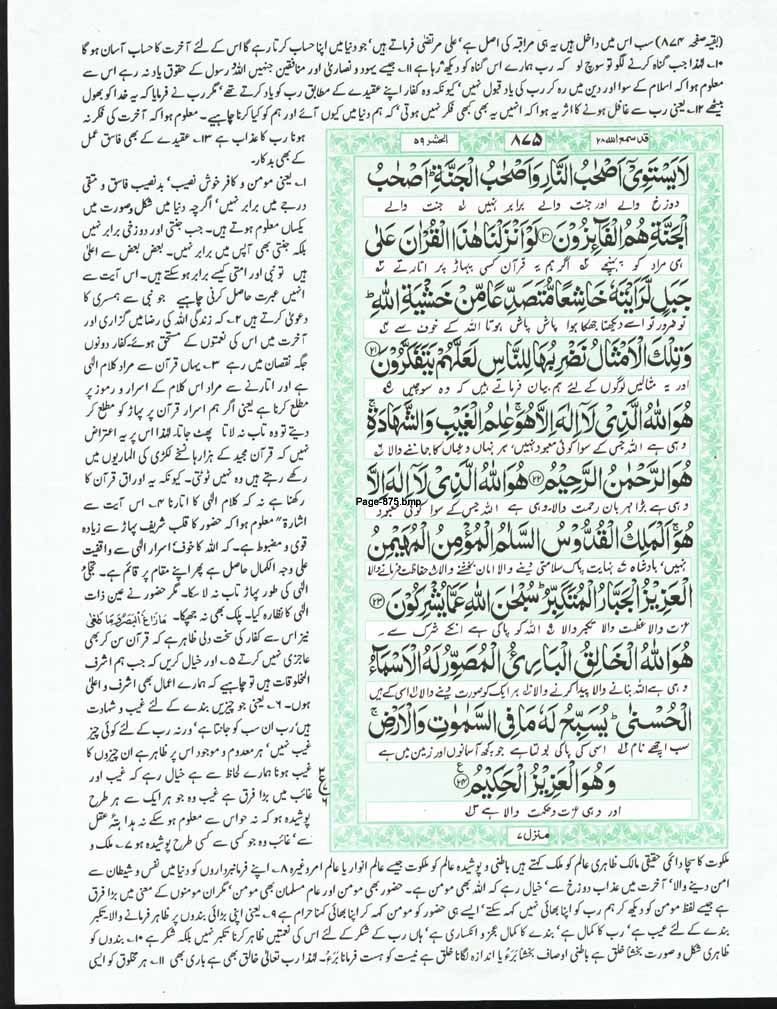 (بقیہ صفحہ ۸۷۴) سب اس میں داخل ہیں یہ ہی مراقبہ کی اصل ہے' علی مرتضیٰ فرماتے ہیں' جو دنیا میں اپنا حساب کرتا رہے گا اس کے لئے آخرت کا حساب آسان ہو گا
۱۰۔ لہٰذا جب گناہ کرنے لگو تو سوچ لو کہ رب ہمارے اس گناہ کو دیکھ رہا ہے ۱۱۔ جیسے یہود و نصاریٰ اور منافقین جنہیں اللہ و رسول کے حقوق یاد نہ رہے اس سے
معلوم ہوا کہ اسلام کے سوا اور دین میں رہ کر رب کی یاد قبول نہیں' کیونکہ وہ کفار اپنے عقیدے کے مطابق رب کو یاد کرتے تھے' مگر رب نے فرمایا کہ یہ خدا کو بھول
بیٹھے ۱۲۔ یعنی رب سے غافل ہونے کا اثر یہ ہوا کہ انہیں یہ بھی کبھی فکر نہیں ہوتی' کہ ہم دنیا میں کیوں آئے اور ہم کو کیا کرنا چاہیے۔ معلوم ہوا کہ آخرت کی فکر نہ
ہونا رب کا عذاب ہے ۱۳۔ عقیدے کے بھی فاسق عمل
کے بھی بدکار۔
۱۔ یعنی مومن و کافر خوش نصیب' بدنصیب فاسق و متقی
درجے میں برابر نہیں' اگرچہ دنیا میں شکل و صورت میں
یکساں معلوم ہوتے ہیں۔ جب جنتی اور دوزخی برابر نہیں
بلکہ جنتی بھی آپس میں برابر نہیں۔ بعض بعض سے اعلیٰ
ہیں تو نبی اور امتی کیسے برابر ہو سکتے ہیں۔ اس آیت سے
انہیں عبرت حاصل کرنی چاہیے جو نبی سے ہمسری کا
دعویٰ کرتے ہیں ۲۔ کہ زندگی اللہ کی رضا میں گزاری اور
آخرت میں اس کی نعمتوں کے مستحق ہوئے۔ کفار دونوں
جگہ نقصان میں رہے ۳۔ یہاں قرآن سے مراد کلام الٰہی
ہے اور اتارنے سے مراد اس کلام کے اسرار و رموز پر
مطلع کرنا ہے یعنی اگر ہم اسرار قرآن پر پہاڑ کو مطلع کر
دیتے تو وہ تاب نہ لاتا پھٹ جاتا۔ لہٰذا اس پر یہ اعتراض
نہیں کہ قرآن مجید کے ہزارہا نسخے لکڑی کی الماریوں میں
رکھے رہتے ہیں وہ نہیں ٹوٹتی۔ کیونکہ یہ اوراق قرآن کا
رکھنا ہے نہ کہ کلام الٰہی کا اتارنا ۴۔ اس آیت سے
اشارۃً معلوم ہوا کہ حضور کا قلب شریف پہاڑ سے زیادہ
قوی و مضبوط ہے۔ کہ اللہ کا خوف' اسرار الٰہی سے واقفیت
علی وجہ الکمال حاصل ہے پھر اپنے مقام پر قائم ہے۔ تجلیٔ
الٰہی کی طور پہاڑ تاب نہ لا سکا۔ مگر حضور نے عین ذات
الٰہی کا نظارہ کیا۔ پلک بھی نہ جھپکا۔ مَازَاغَ الْبَصَرُ وَمَا طَغٰی
نیز اس سے کفار کی سخت دلی ظاہر ہے کہ قرآن سن کر بھی
عاجزی نہیں کرتے ۵۔ اور خیال کریں کہ جب ہم اشرف
المخلوقات ہیں تو چاہیے کہ ہمارے اعمال بھی اشرف و اعلیٰ
ہوں۔ ۶۔ یعنی جو چیزیں بندے کے لئے غیب و شہادت
ہیں' رب ان سب کو جانتا ہے' ورنہ رب کے لئے کوئی چیز
غیب نہیں' ہر معدوم و موجود اس پر ظاہر ہے ان چیزوں کا
غیب ہونا ہمارے لحاظ سے ہے خیال رہے کہ غیب اور
غائب میں بڑا فرق ہے غیب وہ جو ہر ایک سے ہر طرح
پوشیدہ ہو کہ نہ حواس سے معلوم ہو سکے نہ بداہتہً عقل
سے' غائب وہ جو کسی سے کسی طرح پوشیدہ ہو ۷۔ ملک و
قد سمع اللہ ۲۸
۸۷۵
الحشر ۵۹
لَا یَسْتَوِیْۤ اَصْحٰبُ النَّارِ وَ اَصْحٰبُ الْجَنَّةِؕ اَصْحٰبُ
دوزخ والے اور جنت والے برابر نہیں ۱ جنت والے
الْجَنَّةِ هُمُ الْفَآىِٕزُوْنَ ﴿۲۰﴾ لَوْ اَنْزَلْنَا هٰذَا الْقُرْاٰنَ عَلٰى
ہی مراد کو پہنچے ۲ اگر ہم یہ قرآن کسی پہاڑ پر اتارتے ۳
جَبَلٍ لَّرَاَیْتَهٗ خَاشِعًا مُّتَصَدِّعًا مِّنْ خَشْیَةِ اللّٰهِؕ
تو ضرور تو اسے دیکھتا جھکا ہوا پاش پاش ہوتا اللہ کے خوف سے ۴
وَ تِلْكَ الْاَمْثَالُ نَضْرِبُهَا لِلنَّاسِ لَعَلَّهُمْ یَتَفَكَّرُوْنَ ﴿۲۱﴾
اور یہ مثالیں لوگوں کے لئے ہم بیان فرماتے ہیں کہ وہ سوچیں ۵
هُوَ اللّٰهُ الَّذِیْ لَاۤ اِلٰهَ اِلَّا هُوَۚ عٰلِمُ الْغَیْبِ وَ الشَّهَادَةِۚ
وہی ہے اللہ جس کے سوا کوئی معبود نہیں' ہر نہاں و عیاں کا جاننے والا ۶
هُوَ الرَّحْمٰنُ الرَّحِیْمُ ﴿۲۲﴾ هُوَ اللّٰهُ الَّذِیْ لَاۤ اِلٰهَ اِلَّا
وہی ہے بڑا مہربان رحمت والا۔ وہی ہے اللہ جس کے سوا کوئی معبود
Page-875.bmp
هُوَۚ اَلْمَلِكُ الْقُدُّوْسُ السَّلٰمُ الْمُؤْمِنُ الْمُهَیْمِنُ
نہیں' بادشاہ ۷ نہایت پاک سلامتی دینے والا امان بخشنے والا ۸ حفاظت فرمانے والا
الْعَزِیْزُ الْجَبَّارُ الْمُتَكَبِّرُؕ سُبْحٰنَ اللّٰهِ عَمَّا یُشْرِكُوْنَ ﴿۲۳﴾
عزت والا عظمت والا تکبر والا ۹ اللہ کو پاکی ہے انکے شرک سے۔
هُوَ اللّٰهُ الْخَالِقُ الْبَارِئُ الْمُصَوِّرُ لَهُ الْاَسْمَآءُ
وہی ہے اللہ بنانے والا پیدا کرنے والا ۱۰ ہر ایک کو صورت دینے والا ۱۱ اسی کے ہیں
الْحُسْنٰىؕ یُسَبِّحُ لَهٗ مَا فِی السَّمٰوٰتِ وَ الْاَرْضِۚ
سب اچھے نام ۱۲ اسی کی پاکی بولتا ہے جو کچھ آسمانوں اور زمین میں ہے
وَ هُوَ الْعَزِیْزُ الْحَكِیْمُ ﴿۲۴﴾
اور وہی عزت و حکمت والا ہے
منزل ۷
ملکوت کا سچا دائمی حقیقی مالک ظاہری عالم کو ملک کہتے ہیں باطنی و پوشیدہ عالم کو ملکوت جیسے عالم انوار یا عالم امر وغیرہ ۸۔ اپنے فرمانبرداروں کو دنیا میں نفس و شیطان سے
امن دینے والا' آخرت میں عذاب دوزخ سے' خیال رہے کہ اللہ بھی مومن ہے۔ حضور بھی مومن اور عام مسلمان بھی مومن' مگر ان مومنوں کے معنی میں بڑا فرق
ہے جیسے لفظ مومن کو دیکھ کر ہم رب کو اپنا بھائی نہیں کہہ سکتے' ایسے ہی حضور کو مومن کہہ کر اپنا بھائی کہنا حرام ہے ۹۔ یعنی اپنی بڑائی بندوں پر ظاہر فرمانے والا۔ تکبر
بندے کے لئے عیب ہے' رب کا کمال ہے' بندے کا کمال عجز و انکساری ہے' ہاں رب کے شکر کے لئے اس کی نعمتیں ظاہر کرنا تکبر نہیں بلکہ شکر ہے ۱۰۔ بندوں کو
ظاہری شکل و صورت بخشنا خلق ہے باطنی اوصاف بخشنا بَرَءٌ یا اندازہ لگانا خلق ہے نیست کو ہست فرمانا بَرَءٌ۔ لہٰذا رب تعالیٰ خالق بھی ہے باری بھی ۱۱۔ ہر مخلوق کو ایسی